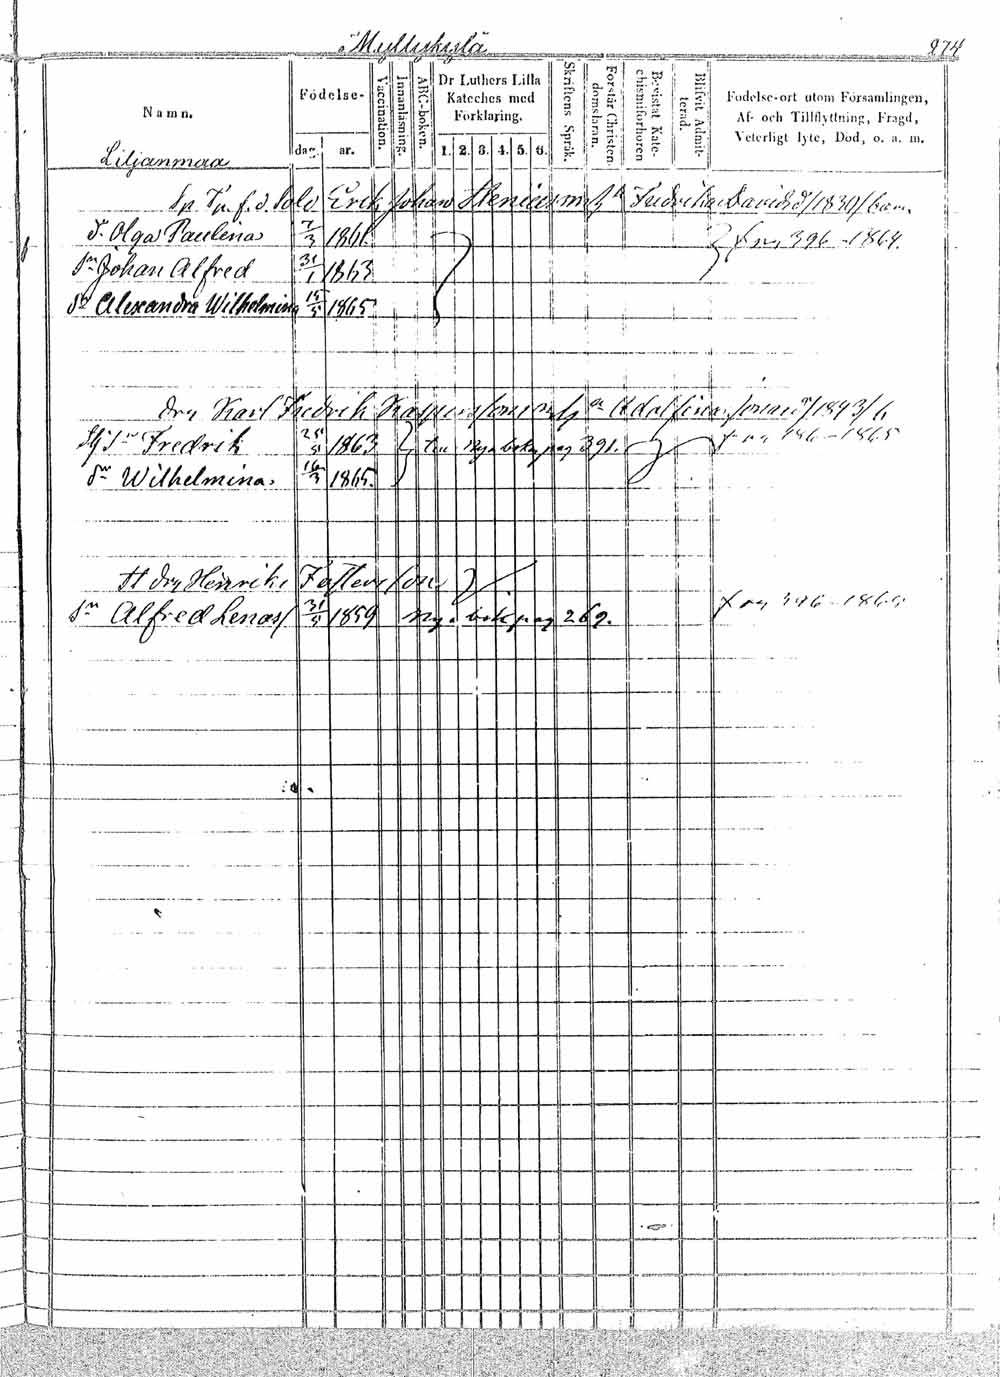 Myllykylä
274
Namn.
Födelse-
dag. år.
Vaccination.
Innanläsning.
ABC-boken.
Dr Luthers Lilla Kateches med Förklaring.
1. 2. 3. 4. 5. 6.
Skriftens Språk.
Förstår Christendomsläran.
Bevistat Katechismiförhören
Blifvit Admitterad.
Födelse-ort utom Församlingen,
Af- och Tillflyttning, Frägd,
Veterligt lyte, Död, o. a. m.
Liljanmaa
f. d. Sold Erik Johan Stenius m h Fredrika Davidsdr /1830/ barn.
dr Olga Paulina 7/3 1861.
fr pag 396 - 1864.
sn Johan Alfred 31/1 1863
dr Alexandra Wilhelmina 15/5 1865
drg Karl Fredrik Kaspersson o h Adolfina /1843/ b
sn Fredrik 25/5 1863 nya boken pag 391.
dr Wilhelmina 16/3 1865.
drg Henrik
sn Alfred Lenas 31/5 1859 Nya bok pag 269.